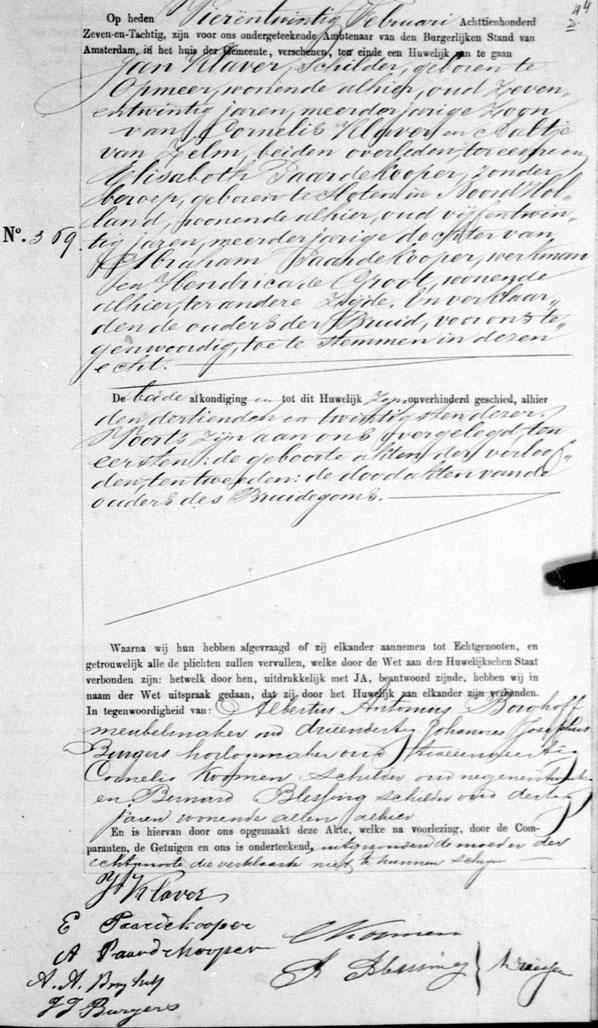 44
Op heden Vierentwintig Februari Achttienhonderd
Zeven-en-Tachtig, zijn voor ons ondergeteekende Ambtenaar van den Burgerlijken Stand van
Amsterdam, in het huis der Gemeente, verschenen, ten einde een Huwelijk aan te gaan
Jan Klaver, Schilder, geboren te
Opmeer, wonende alhier, oud zeven
entwintig jaren, meerderjarige zoon
van Cornelis Klaver en Aaltje
van Zelm, beiden overleden, ter eenre en
Elisabeth Paardekooper, zonder
beroep, geboren te Sloten in Noord Hol„
land, wonende alhier, oud vijfentwin„
No. 369.
tig jaren, meerderjarige dochter van
Abraham Paardekooper, werkman
en Hendrica de Groot, wonende
alhier, ter andere zijde. En verklaar„
den de ouders der Bruid, voor ons te„
genwoordig, toe te stemmen in dezen
echt.
De beide afkondigingen tot dit Huwelijk zijn onverhinderd geschied, alhier
den dertienden en twintigsten dezer.
Voorts zijn aan ons overgelegd ten
eersten: de geboorte akten der verloof„
den, ten tweeden: de doodakten van de
ouders des Bruidegoms.
Waarna wij hun hebben afgevraagd of zij elkander aannemen tot Echtgenooten, en
getrouwelijk alle de plichten zullen vervullen, welke door de Wet aan den Huwelijkschen Staat
verbonden zijn: hetwelk door hen, uitdrukkelijk met JA, beantwoord zijnde, hebben wij in
naam der Wet uitspraak gedaan, dat zij door het Huwelijk aan elkander zijn verbonden.
In tegenwoordigheid van: Albertus Antonius Borghoff
meubelmaker oud drieendertig Johannes Josephus
Burgers horlogemaker oud tweeentwintig
Cornelis Koomen schilder oud negenentwintig
en Bernard Blessing schilder oud dertig
jaren wonende allen alhier
En is hiervan door ons opgemaakt deze Akte, welke na voorlezing, door de Com-
paranten, de Getuigen en ons is onderteekend, uitgezonderd de moeder der
echtgenoote die verklaarde niet te kunnen schrijven
J Klaver
E Paardekooper
A Paardekooper
C Koomen
A. A. Borghoff
B Blessing
J J Burgers